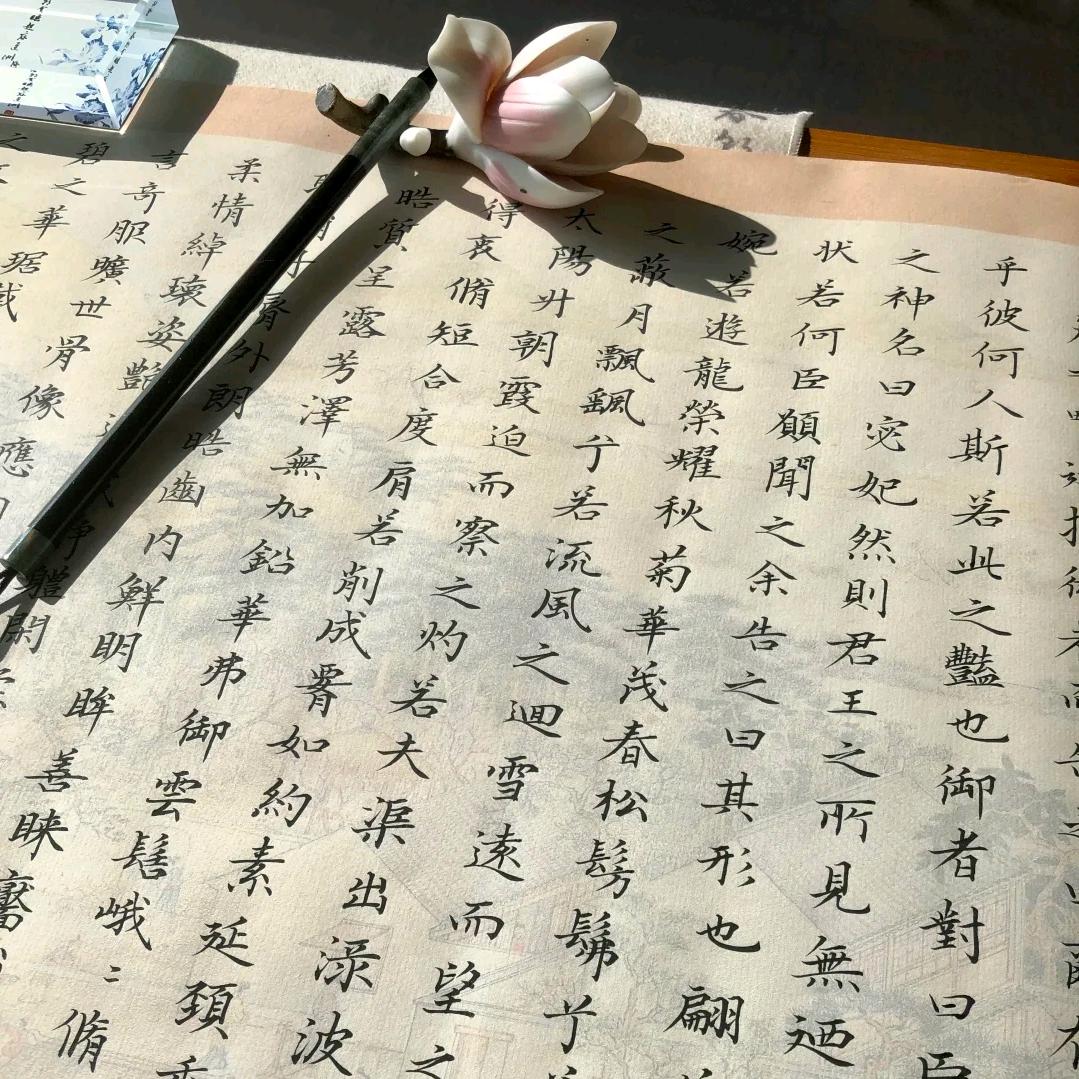 乎彼何人斯若此之豔也御者對曰臣
之神名曰宓妃然則君王之所見無迺
状若何臣願聞之余告之曰其形也翩
婉若遊龍榮耀秋菊華茂春松髣髴兮
之蔽月飄颻兮若流風之迴雪遠而望之
太陽升朝霞迫而察之灼若夫渠出渌波
得衷脩短合度肩若削成𦝫如約素延頸
皓質呈露芳澤無加鉛華弗御雲髻峨二脩
脣外朗皓齒内鮮明眸善睞靨
柔情綽瓌姿艷體閑
言奇服曠世骨像應
碧之華琚